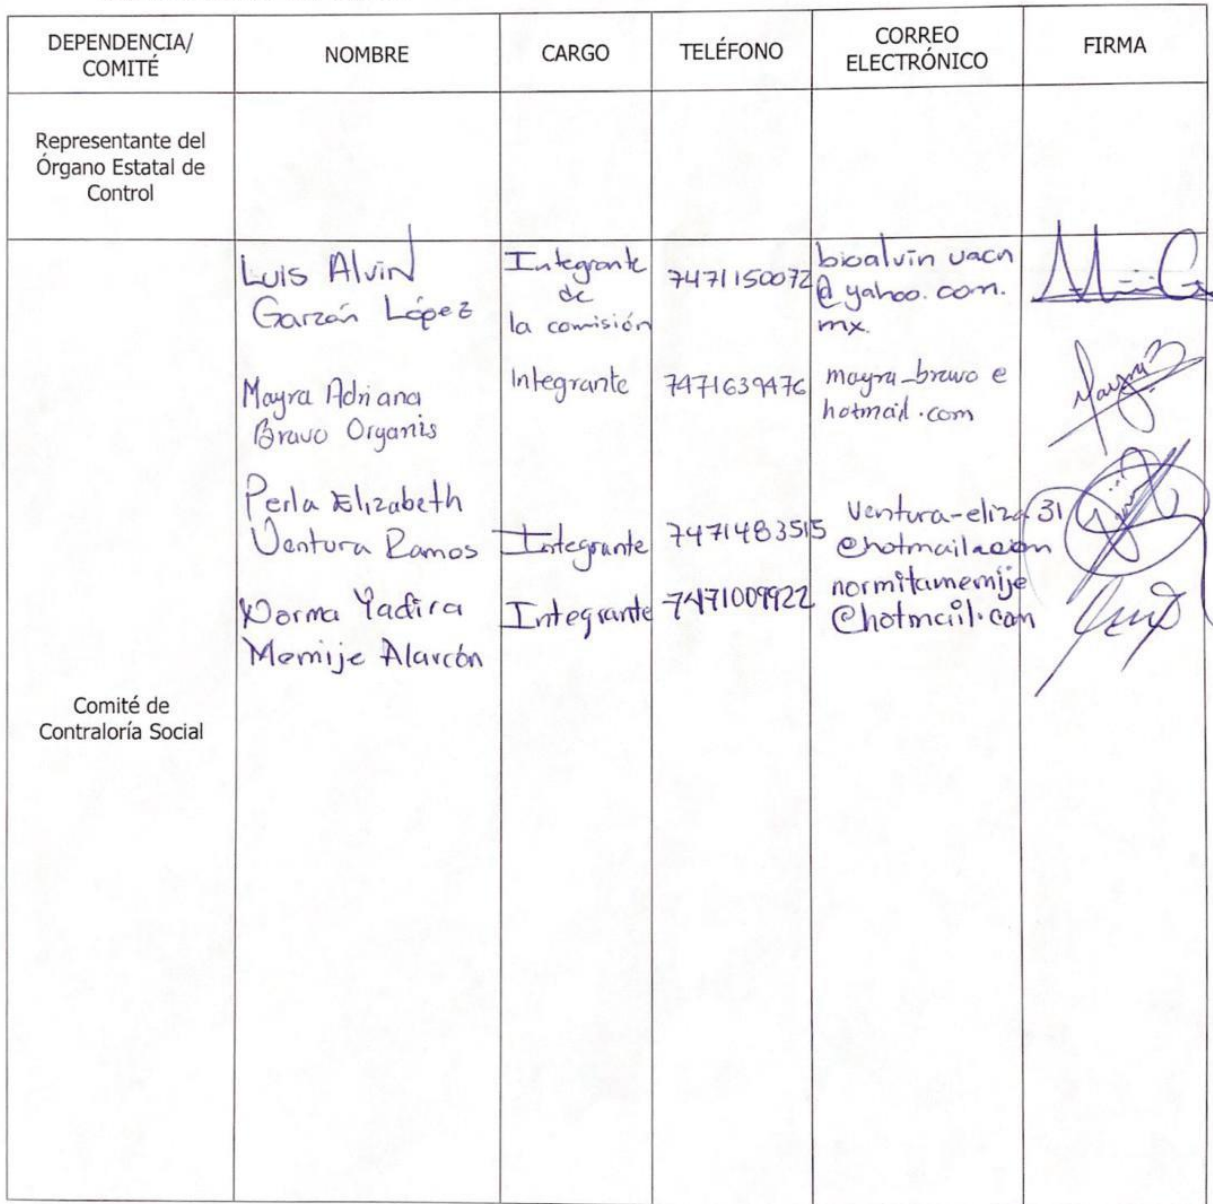 DEPENDENCIA/
COMITÉ
NOMBRE
CARGO
TELÉFONO
CORREO
ELECTRÓNICO
FIRMA
Representante del
Órgano Estatal de
Control
Comité de
Contraloría Social
Luis Alvin
Garzón López
Integrante
de
la comisión
7471150072
bioalvin uacn
@ yahoo.com.
mx.
Mayra Adriana
Bravo Organis
Integrante
7471639476
mayra_bravo e
hotmail.com
Mayra
Perla Elizabeth
Ventura Ramos
Integrante
7471483515
Ventura-eliza 31
Norma Yadira
Memije Alarcón
Integrante
7471009922
normitamemije
@hotmail.com